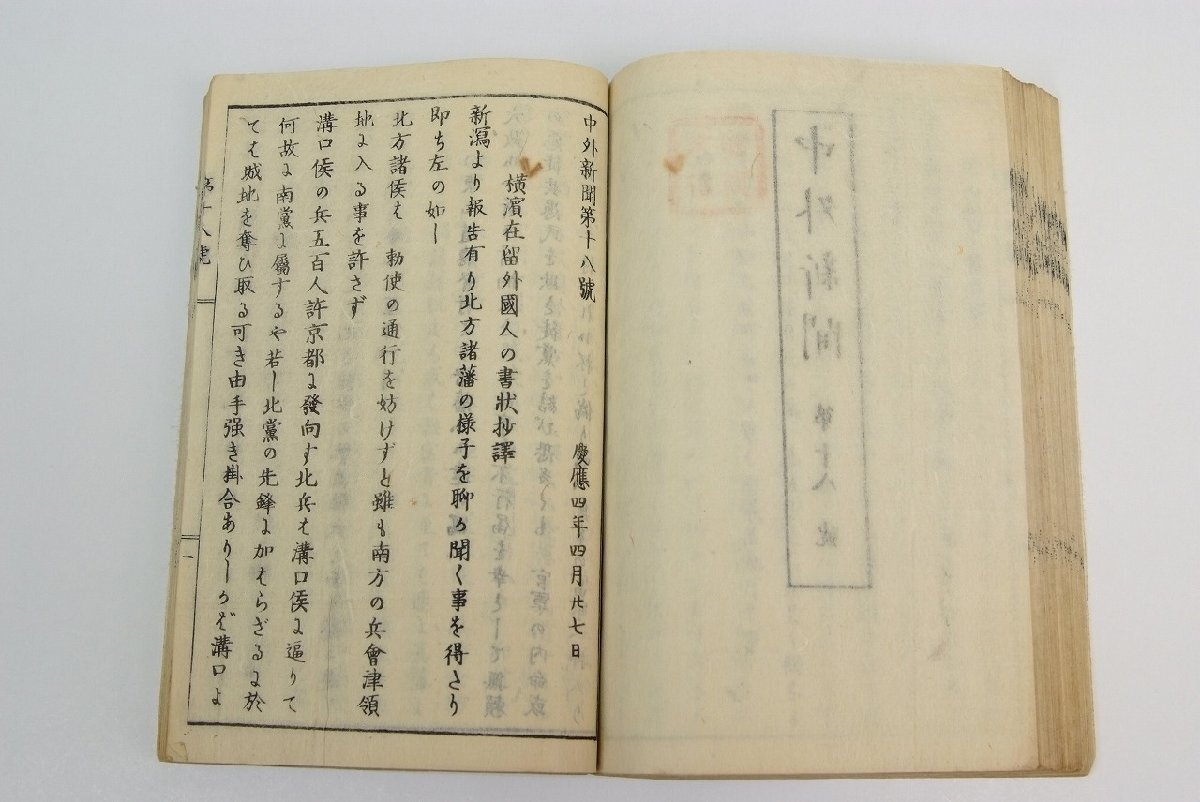 中外新聞
第十八號
中外新聞第十八號
慶應四年四月廿七日
横濱在留外國人の書狀抄譯
新潟より報告有り北方諸藩の様子を聊か聞く事を得さり
即ち左の如し
北方諸侯は 勅使の通行を妨けずと雖も南方の兵會津領
地に入る事を許さず
溝口侯の兵五百人許京都に發向す北兵は溝口侯に逼りて
何故に南黨に屬するや若し北黨の先鋒に加はらざるに於
ては城地を奪ひ取る可き由手强き掛合ありしかば溝口よ
第十八號
一